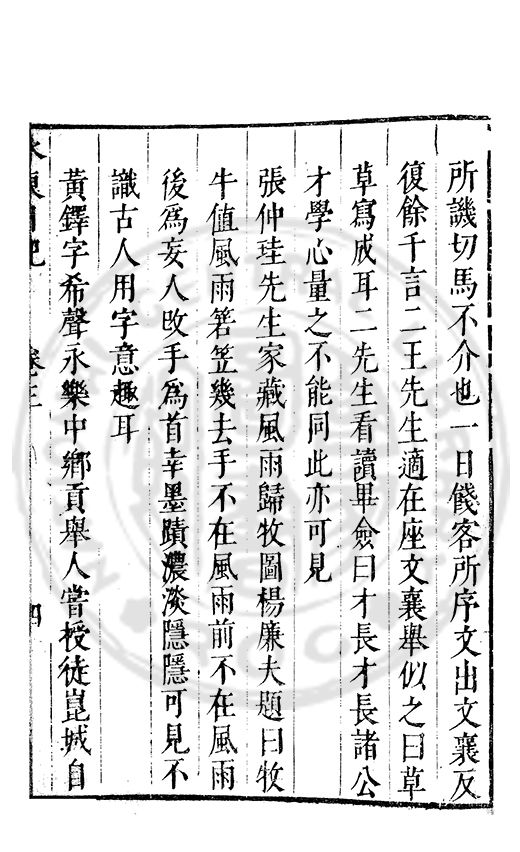 所譏切馬不介也一日餞客所序文出文襄反
復餘千言二王先生適在座文襄舉似之曰草
草寫成耳二先生看讀畢僉曰才長才長諸公
才學心量之不能同此亦可見
張仲珪先生家藏風雨歸牧圖楊廉夫題曰牧
牛值風雨箬笠幾去手不在風雨前不在風雨
後爲妄人改手爲首幸墨蹟濃淡隱隱可見不
識古人用字意趣耳
黃鐸字希聲永樂中鄉貢舉人嘗授徒崑城自
水東日記
卷三
四